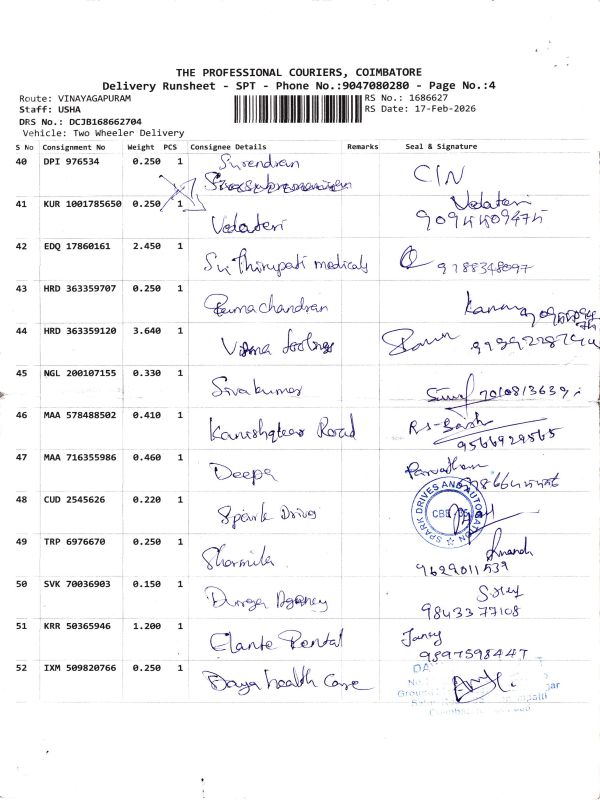 THE PROFESSIONAL COURIERS, COIMBATORE
Delivery Runsheet - SPT - Phone No.:9047080280 - Page No.:4
Route: VINAYAGAPURAM
Staff: USHA
DRS No.: DCJB168662704
Vehicle: Two Wheeler Delivery
RS No.: 1686627
RS Date: 17-Feb-2026
S No Consignment No Weight PCS Consignee Details Remarks Seal & Signature
40 DPI 976534 0.250 1 Surendran
CIN
41 KUR 1001785650 0.250 1 Vedateri Vedateri
42 EDQ 17860161 2.450 1 Sri Thirupati medicals 9788348097
43 HRD 363359707 0.250 1 Ramachandran
44 HRD 363359120 3.640 1
45 NGL 200107155 0.330 1 Sivakumar 7010813639
46 MAA 578488502 0.410 1 Road
9566929565
47 MAA 716355986 0.460 1 Deepa
48 CUD 2545626 0.220 1 Spark Drives
SPARK DRIVES AND AUTOMATION
49 TRP 6976670 0.250 1 Sharmila Anandh
9629011539
50 SVK 70036903 0.150 1 Durga Agency
9843377108
51 KRR 50365946 1.200 1 Elante Rental Jancy
9897598447
52 IXM 509820766 0.250 1 Daya health Care